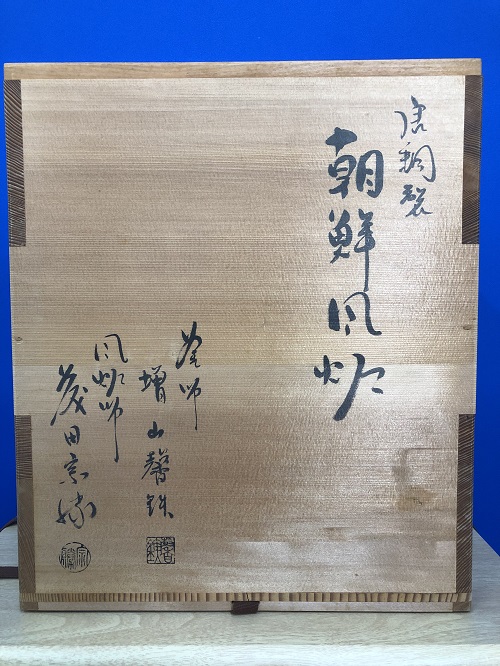 唐銅製
朝鮮風炉
釜師
増山馨鉄
風炉師
茂田宗